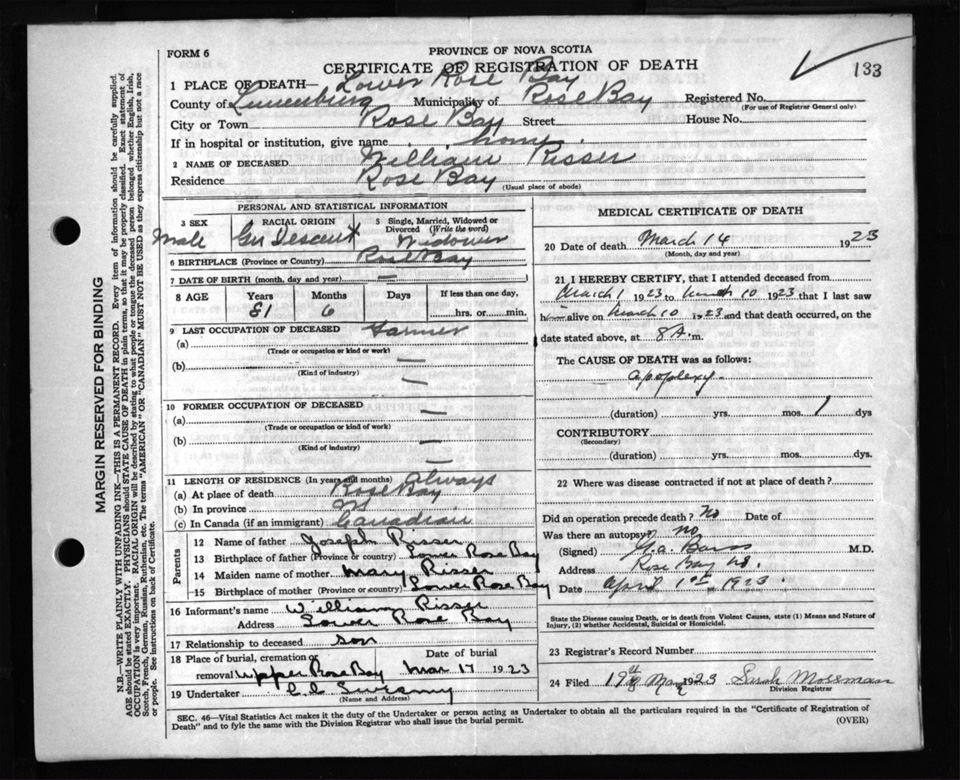 FORM 6
PROVINCE OF NOVA SCOTIA
CERTIFICATE OF REGISTRATION OF DEATH
133
1 PLACE OF DEATH— Lower Rose Bay
County of Lunenburg Municipality of Rose Bay Registered No.
(For use of Registrar General only)
City or Town Rose Bay Street House No.
If in hospital or institution, give name home
2 NAME OF DECEASED William Risser
Residence Rose Bay (Usual place of abode)
PERSONAL AND STATISTICAL INFORMATION
3 SEX Male
RACIAL ORIGIN Ger Descent
5 Single, Married, Widowed or Divorced (Write the word) Widower
6 BIRTHPLACE (Province or Country) Rose Bay
7 DATE OF BIRTH (month, day and year) —
8 AGE Years 81 Months 6 Days If less than one day, hrs. or min.
9 LAST OCCUPATION OF DECEASED Farmer
(a)
(Trade or occupation or kind or work)
(b) —
(Kind of industry)
—
10 FORMER OCCUPATION OF DECEASED —
(a)
(Trade or occupation or kind or work)
(b) —
(Kind of industry)
—
11 LENGTH OF RESIDENCE (In years and months) always
(a) At place of death Rose Bay
(b) In province NS
(c) In Canada (if an immigrant) Canadian
Parents
12 Name of father Joseph Risser
13 Birthplace of father (Province or country) Lower Rose Bay
14 Maiden name of mother Mary Risser
15 Birthplace of mother (Province or country) Lower Rose Bay
16 Informant's name William Risser
Address Lower Rose Bay
17 Relationship to deceased son
18 Place of burial, cremation or removal Upper Rose Bay
Date of burial Mar 17 1923
19 Undertaker
(Name and Address)
MEDICAL CERTIFICATE OF DEATH
20 Date of death March 14 1923
(Month, day and year)
21 I HEREBY CERTIFY, that I attended deceased from
March 1 1923 to March 10 1923 that I last saw
h alive on March 10 1923 and that death occurred, on
date stated above, at 8 A. m.
The CAUSE OF DEATH was as follows:
apoplexy
(duration) yrs. mos. 1 dys
CONTRIBUTORY
(Secondary)
(duration) yrs. mos. dys.
22 Where was disease contracted if not at place of death?
Did an operation precede death? No Date of
Was there an autopsy? No
(Signed) M.D.
Address Rose Bay NS.
Date April 1st 1923.
State the Disease causing Death, or in death from Violent Causes, state (1) Means and Nature of Injury, (2) whether Accidental, Suicidal or Homicidal.
23 Registrar's Record Number
24 Filed 19th Mar 1923 Sarah Mossman
Division Registrar
SEC. 46—Vital Statistics Act makes it the duty of the Undertaker or person acting as Undertaker to obtain all the particulars required in the "Certificate of Registration of
Death" and to fyle the same with the Division Registrar who shall issue the burial permit.
(OVER)
MARGIN RESERVED FOR BINDING
N.B.—WRITE PLAINLY WITH UNFADING INK—THIS IS A PERMANENT RECORD. Every item of information should be carefully supplied.
AGE should be stated EXACTLY. PHYSICIANS should STATE CAUSE OF DEATH in plain terms, so that it may be properly classified. Exact statement of
OCCUPATION is very important. RACIAL ORIGIN will be described by stating to what people or tongue the deceased person belonged whether English, Irish,
Scotch, French, German, Russian, Ruthenian, etc. The terms "AMERICAN" OR "CANADIAN" MUST NOT BE USED as they express citizenship but not a race
or people. See instructions on back of Certificate.